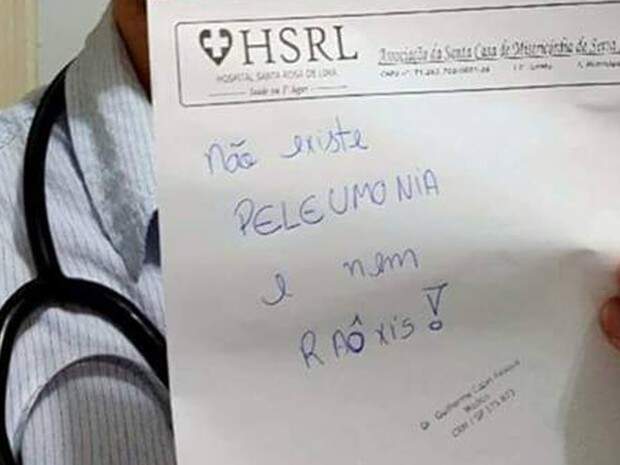 HSRL
HOSPITAL SANTA ROSA DE LIMA
Saúde em 1º lugar
Associação da Santa Casa de Misericórdia de Serra
não existe
PELEUMONIA
e nem
RAÔXIS!
Dr. Guilherme Capel
Médico
CRM / SP